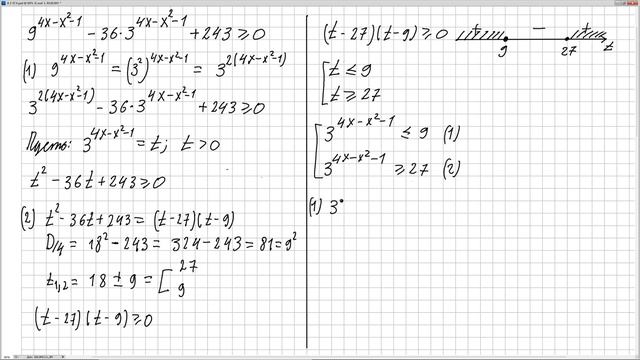 9^{4x-x^2-1} - 36·3^{4x-x^2-1} + 243 ≥ 0
(1) 9^{4x-x^2-1} = (3^2)^{4x-x^2-1} = 3^{2(4x-x^2-1)}
3^{2(4x-x^2-1)} - 36·3^{4x-x^2-1} + 243 ≥ 0
Пусть: 3^{4x-x^2-1} = t; t > 0
t^2 - 36t + 243 ≥ 0
(2) t^2 - 36t + 243 = (t-27)(t-9)
D/4 = 18^2 - 243 = 324 - 243 = 81 = 9^2
t_{1,2} = 18 ± 9 = [ 27
9
(t-27)(t-9) ≥ 0
(t-27)(t-9) ≥ 0 + − +
9 27 t
[ t ≤ 9
t ≥ 27
[ 3^{4x-x^2-1} ≤ 9 (1)
3^{4x-x^2-1} ≥ 27 (2)
(1) 3